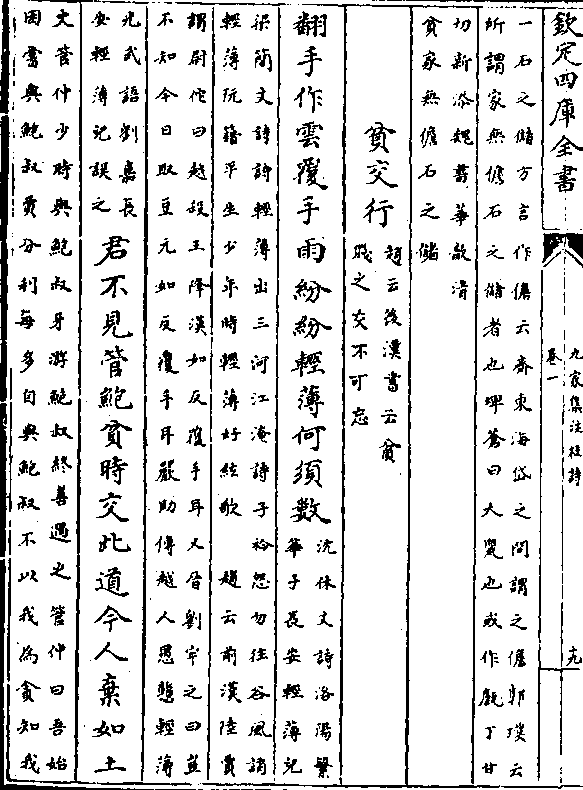 欽定四庫全書
九家集注杜詩
卷一
十九
一石之儲方言作儋云齊東海岱之間謂之儋郭璞云
所謂家無儋石之儲者也埤蒼曰大甖也或作甔丁甘
切新添魏書華歆清
貧家無儋石之儲
貧交行
趙云後漢書云貧
賤之交不可忘
翻手作雲覆手雨紛紛輕薄何須數
沈休文詩洛陽繁
華子長安輕薄兒
梁簡文詩詩輕薄出三河江淹詩子衿怨勿往谷風誚
輕薄阮籍平生少年時輕薄好絃歌 趙云前漢陸賈
謂尉佗曰越殺王降漢如反覆手耳又晉劉牢之曰並
不知今日取豆元如反覆手耳嚴助傳越人愚戇輕薄
光武語劉嘉長
安輕薄兒誤之
君不見管鮑貧時交此道今人棄如土
文管仲少時與鮑叔牙游鮑叔終善遇之管仲曰吾始
困嘗與鮑叔賈分利每多自與鮑叔不以我為貪知我